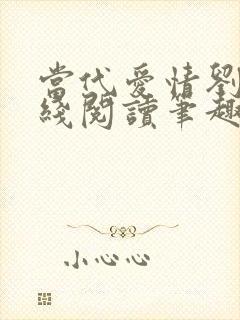 當代愛情劉
綫閱讀筆趣
小心心